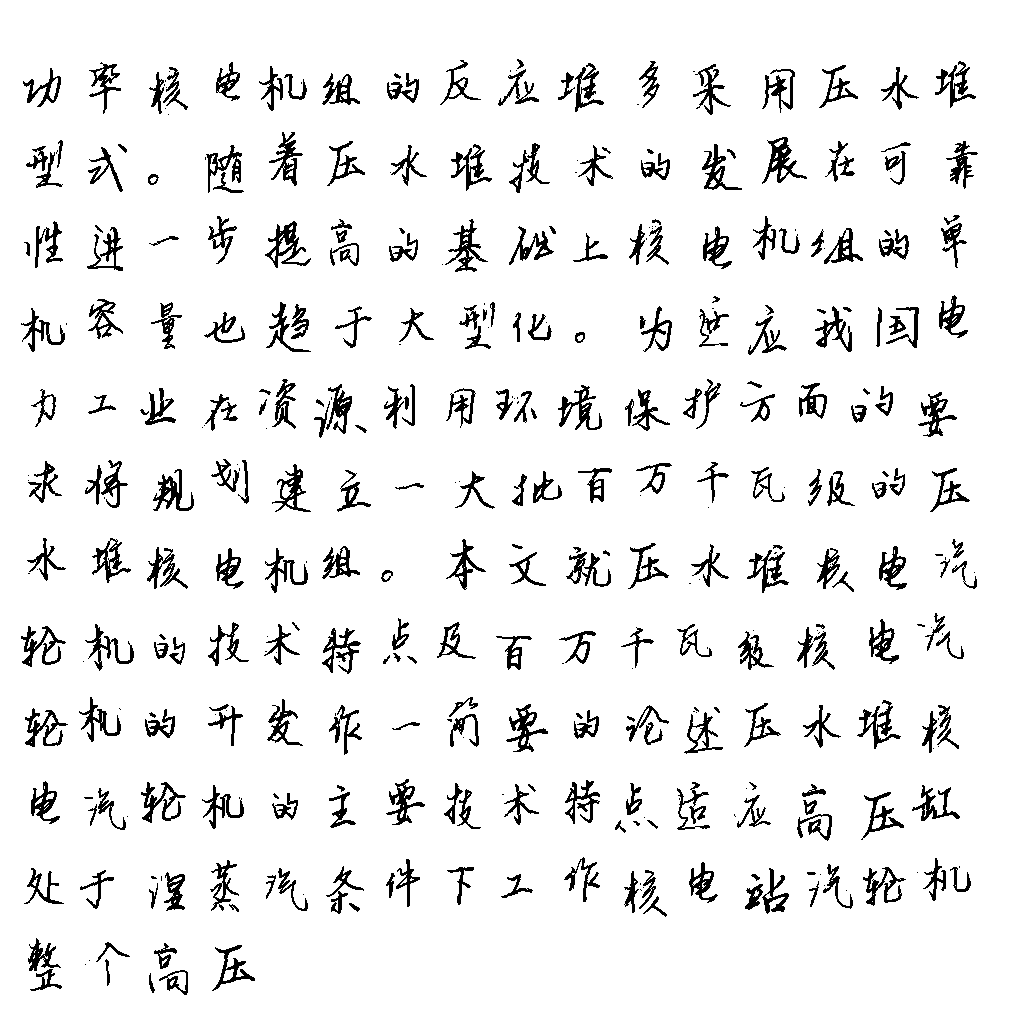 功率核电机组的反应堆多采用压水堆
型式。随着压水堆技术的发展在可靠
性进一步提高的基础上核电机组的单
机容量也趋于大型化。为适应我国电
力工业在资源利用环境保护方面的要
求将规划建立一大批百万千瓦级的压
水堆核电机组。本文就压水堆核电汽
轮机的技术特点及百万千瓦级核电汽
轮机的开发作一简要的论述压水堆核
电汽轮机的主要技术特点适应高压缸
处于湿蒸汽条件下工作核电站汽轮机
整个高压